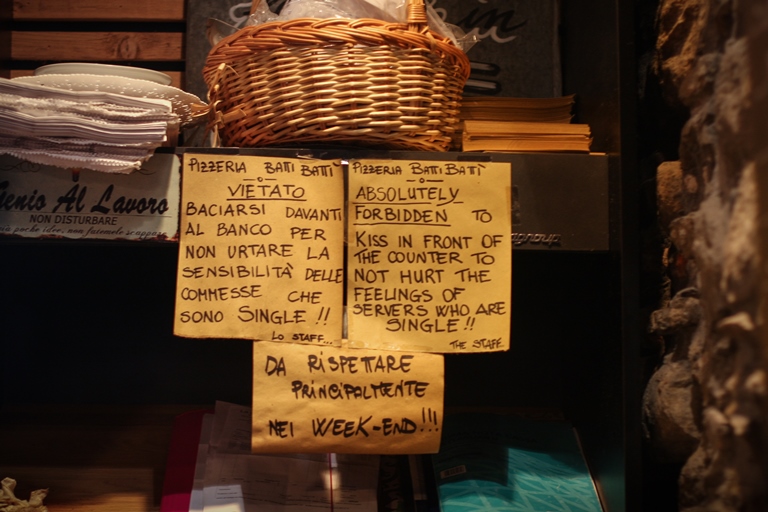 Genio Al Lavoro
NON DISTURBARE
PIZZERIA BATTI BATTI
VIETATO
BACIARSI DAVANTI
AL BANCO PER
NON URTARE LA
SENSIBILITÀ DELLE
COMMESSE CHE
SONO SINGLE !!
LO STAFF...
PIZZERIA BATTI BATTI
ABSOLUTELY
FORBIDDEN TO
KISS IN FRONT OF
THE COUNTER TO
NOT HURT THE
FEELINGS OF
SERVERS WHO ARE
SINGLE !!
THE STAFF..
DA RISPETTARE
PRINCIPALMENTE
NEI WEEK-END!!!